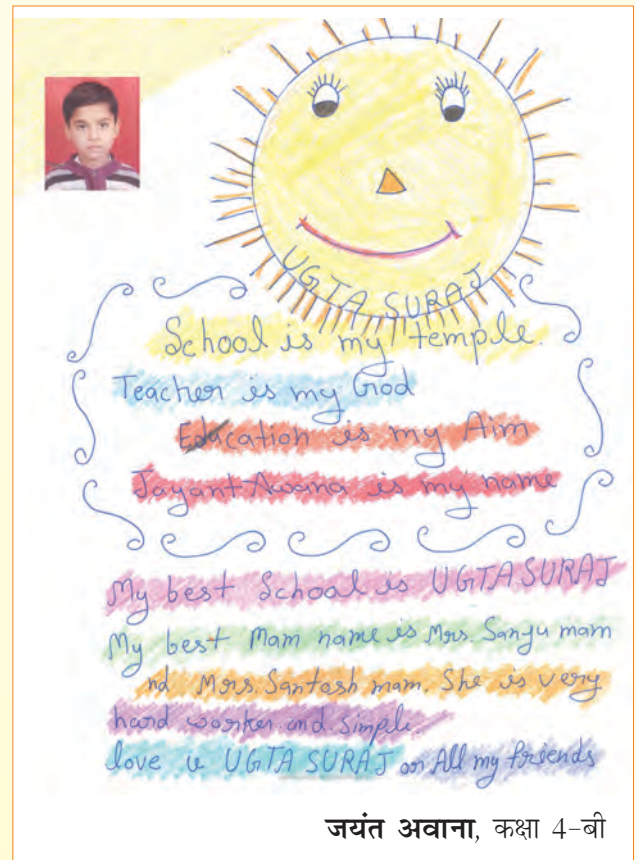 UGTA SURAJ
School is my temple.
Teacher is my God
Education is my Aim
Jayant Awana is my name
My best School is UGTA SURAJ
My best Mam name is Mrs. Sanju mam
nd Mrs. Santosh mam. She is very
hard worker and simple.
love u UGTA SURAJ or All my friends
जयंत अवाना, कक्षा 4-बी